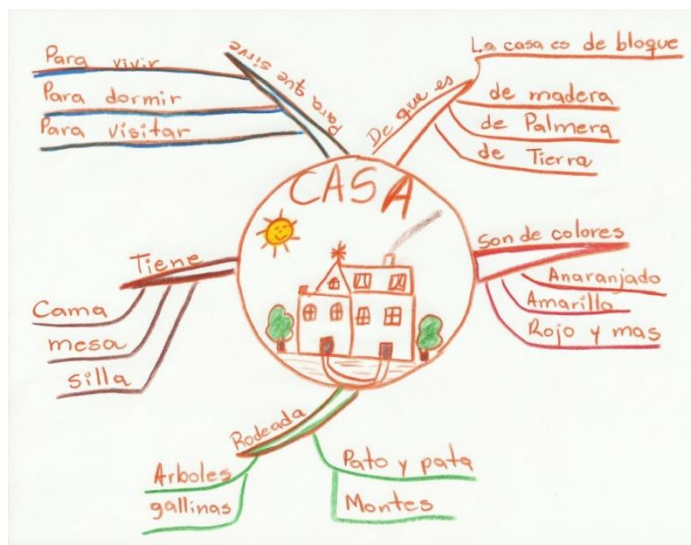 CASA
Para que sirve
Para vivir
Para dormir
Para visitar
De que es
La casa es de bloque
de madera
de Palmera
de Tierra
Son de colores
Anaranjado
Amarillo
Rojo y mas
Tiene
Cama
mesa
silla
Rodeada
Arboles
gallinas
Pato y pata
Montes